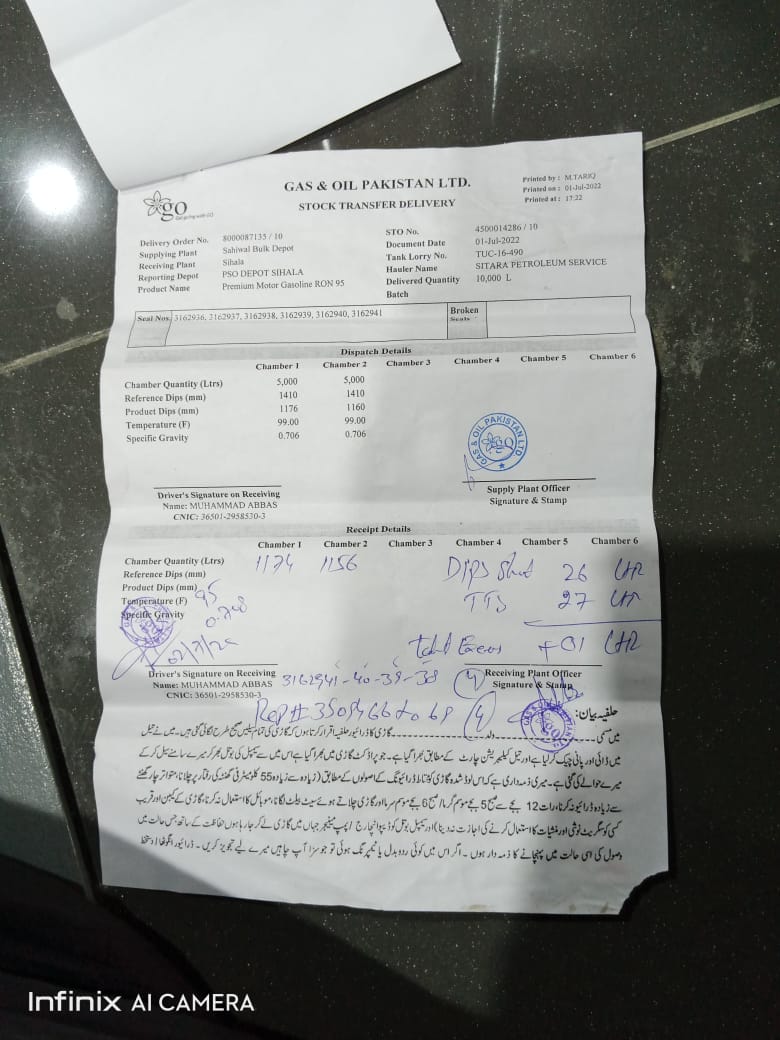 GAS & OIL PAKISTAN LTD.
STOCK TRANSFER DELIVERY
Printed by : M.TARIQ
Printed on : 01-Jul-2022
Printed at : 17:22
go
Delivery Order No. 8000087135 / 10
Supplying Plant Sahiwal Bulk Depot
Receiving Plant Sihala
Reporting Depot PSO DEPOT SIHALA
Product Name Premium Motor Gasoline RON 95
STO No. 4500014286 / 10
Document Date 01-Jul-2022
Tank Lorry No. TUC-16-490
Hauler Name SITARA PETROLEUM SERVICE
Delivered Quantity 10,000 L
Batch
Seal Nos. 3162936, 3162937, 3162938, 3162939, 3162940, 3162941
Broken Seals
Dispatch Details
Chamber 1 Chamber 2 Chamber 3 Chamber 4 Chamber 5 Chamber 6
Chamber Quantity (Ltrs) 5,000 5,000
Reference Dips (mm) 1410 1410
Product Dips (mm) 1176 1160
Temperature (F) 99.00 99.00
Specific Gravity 0.706 0.706
GAS & OIL PAKISTAN LTD.
go
Driver's Signature on Receiving
Name: MUHAMMAD ABBAS
CNIC: 36501-2958530-3
Supply Plant Officer
Signature & Stamp
Receipt Details
Chamber 1 Chamber 2 Chamber 3 Chamber 4 Chamber 5 Chamber 6
Chamber Quantity (Ltrs) 1174 1156
Reference Dips (mm)
Product Dips (mm)
Temperature (F) 95
Specific Gravity
Dips Short 26 LTR
TTS 27 LTR
+ 01 LTR
Driver's Signature on Receiving
Name: MUHAMMAD ABBAS
CNIC: 36501-2958530-3
3162941-40-39-38 4
Receiving Plant Officer
Signature & Stamp
4
حلفیہ بیان:
میں مسمی ولد گاڑی کا ڈرائیور حلفیہ اقرار کرتا ہوں کہ گاڑی کی تمام سیلیں صحیح طرح لگائی گئی ہیں۔ میں نے تیل
میں ڈائی اور پانی چیک کر لیا ہے اور تیل کیلیبریشن چارٹ کے مطابق بھرا گیا ہے۔ جو پراڈکٹ گاڑی میں بھرا گیا ہے اس میں سے سیمپل کی بوتل بھر کر میرے سامنے سیل کر کے
میرے حوالے کی گئی ہے۔ میری ذمہ داری ہے کہ اس لوڈ شدہ گاڑی کو ڈرائیونگ کے اصولوں کے مطابق (زیادہ سے زیادہ 55 کلومیٹر فی گھنٹہ کی رفتار پر چلانا، متواتر چار گھنٹے
سے زیادہ ڈرائیو نہ کرنا، رات 12 بجے سے صبح 5 بجے موسم گرما / صبح 6 بجے موسم سرما اور گاڑی چلاتے ہوئے سیٹ بیلٹ لگانا، موبائل کا استعمال نہ کرنا، گاڑی کے کیبن اور قریب
کسی کو سگریٹ نوشی اور منشیات کا استعمال کرنے کی اجازت نہ دینا) اور سیمپل بوتل کو ڈپو انچارج / پمپ مینیجر جہاں میں گاڑی لے کر جا رہا ہوں حفاظت کے ساتھ جس حالت میں
وصول کی اسی حالت میں پہنچانے کا ذمہ دار ہوں۔ اگر اس میں کوئی ردوبدل یا ٹیمپرنگ ہوئی تو جو سزا آپ چاہیں میرے لیے تجویز کریں۔ ڈرائیور انگوٹھا / دستخط
Infinix AI CAMERA